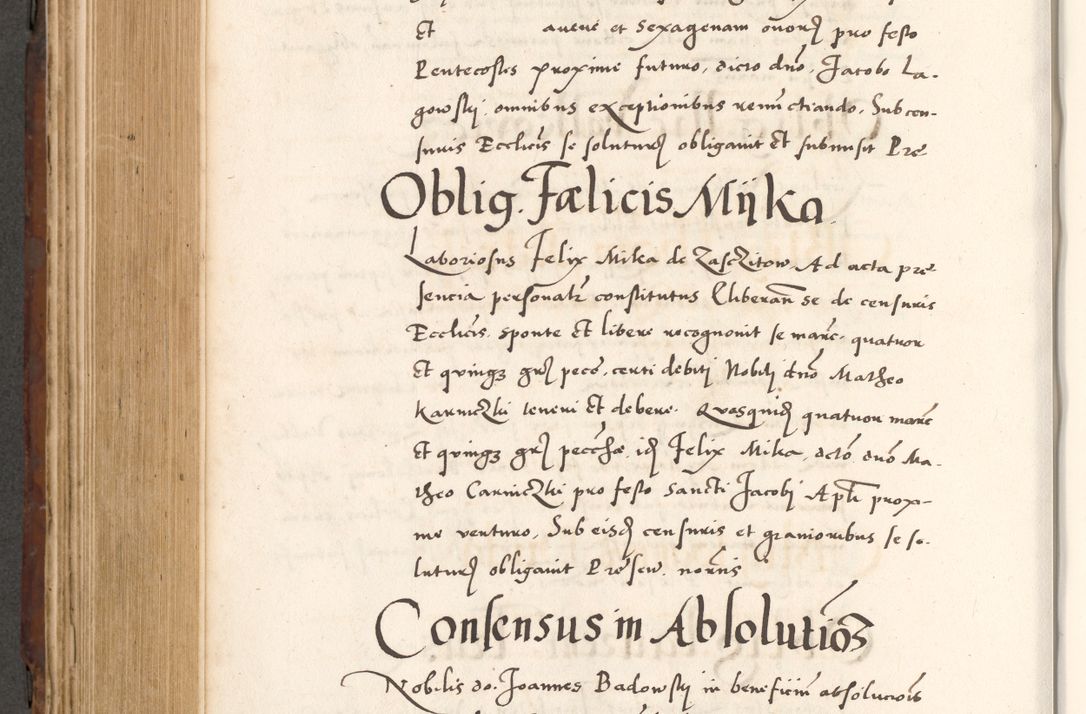 Et auene et sexagenam ouorȝ pro festo
Pentecostes proxime futuro, dicto dnō, Jacobo La-
gowski, omnibus exceptionibus renūctiando. Sub cen-
suris Ecclicīs se soluturȝ obligauit Et submisit Pre
Oblig. Fælicis Mijka
Laboriosus Felix Mika de ZascZitow, Ad acta pre
sencia personalr constitutus Cliberan̄ se de censuris
Ecclicīs, sponte Et libere recognouit se marc. quatuor
Et quinqȝ grȝ pecc. certi debitj Nobilj dnō Matheo
KarnicZki teneri Et debere. Quasquidȝ quatuor marc
Et quinqȝ grȝ pecchæ, idȝ Felix Mika, dctō dnō Ma-
theo CarnicZki pro festo Sancti Jacobj Apli prox-
me venturo, Sub eisdȝ censuris et grauioribus se so-
luturȝ obligauit Pre sen. norīis
Consensus in Absolutiōȝ
Nobilis do. Joannes Badowskj in beneficiū absolucōis